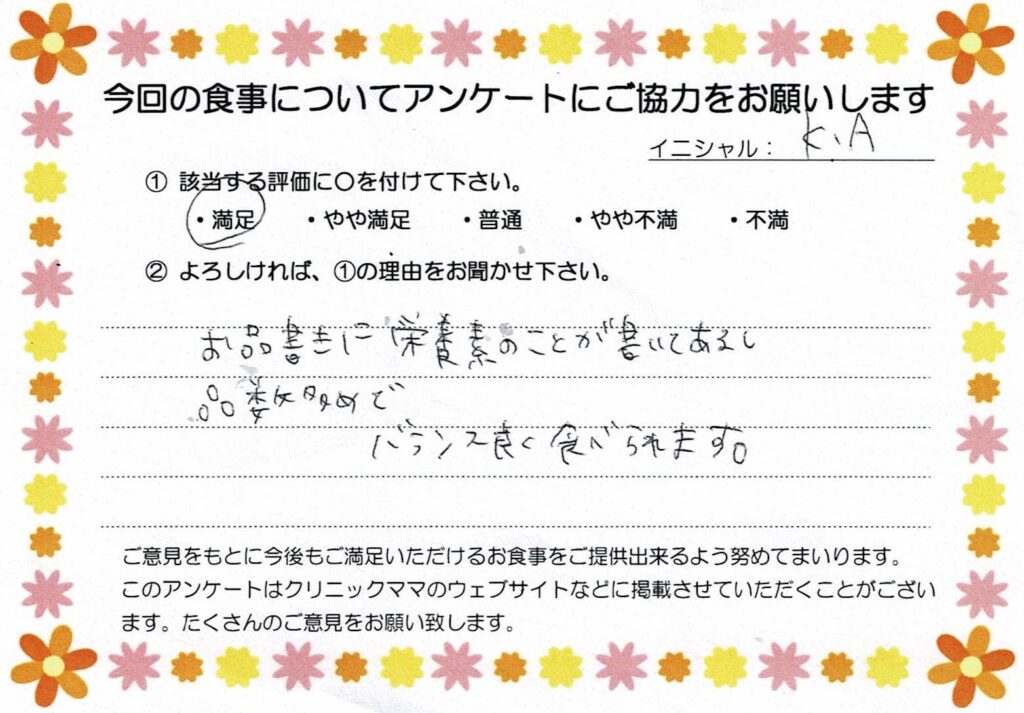 今回の食事についてアンケートにご協力をお願いします
イニシャル： K、A
① 該当する評価に〇を付けて下さい。
・満足 ・やや満足 ・普通 ・やや不満 ・不満
② よろしければ、①の理由をお聞かせ下さい。
お品書きに栄養素のことが書いてあるし
品数多めで
バランス良く食べられます。
ご意見をもとに今後もご満足いただけるお食事をご提供出来るよう努めてまいります。
このアンケートはクリニックママのウェブサイトなどに掲載させていただくことがござい
ます。たくさんのご意見をお願い致します。